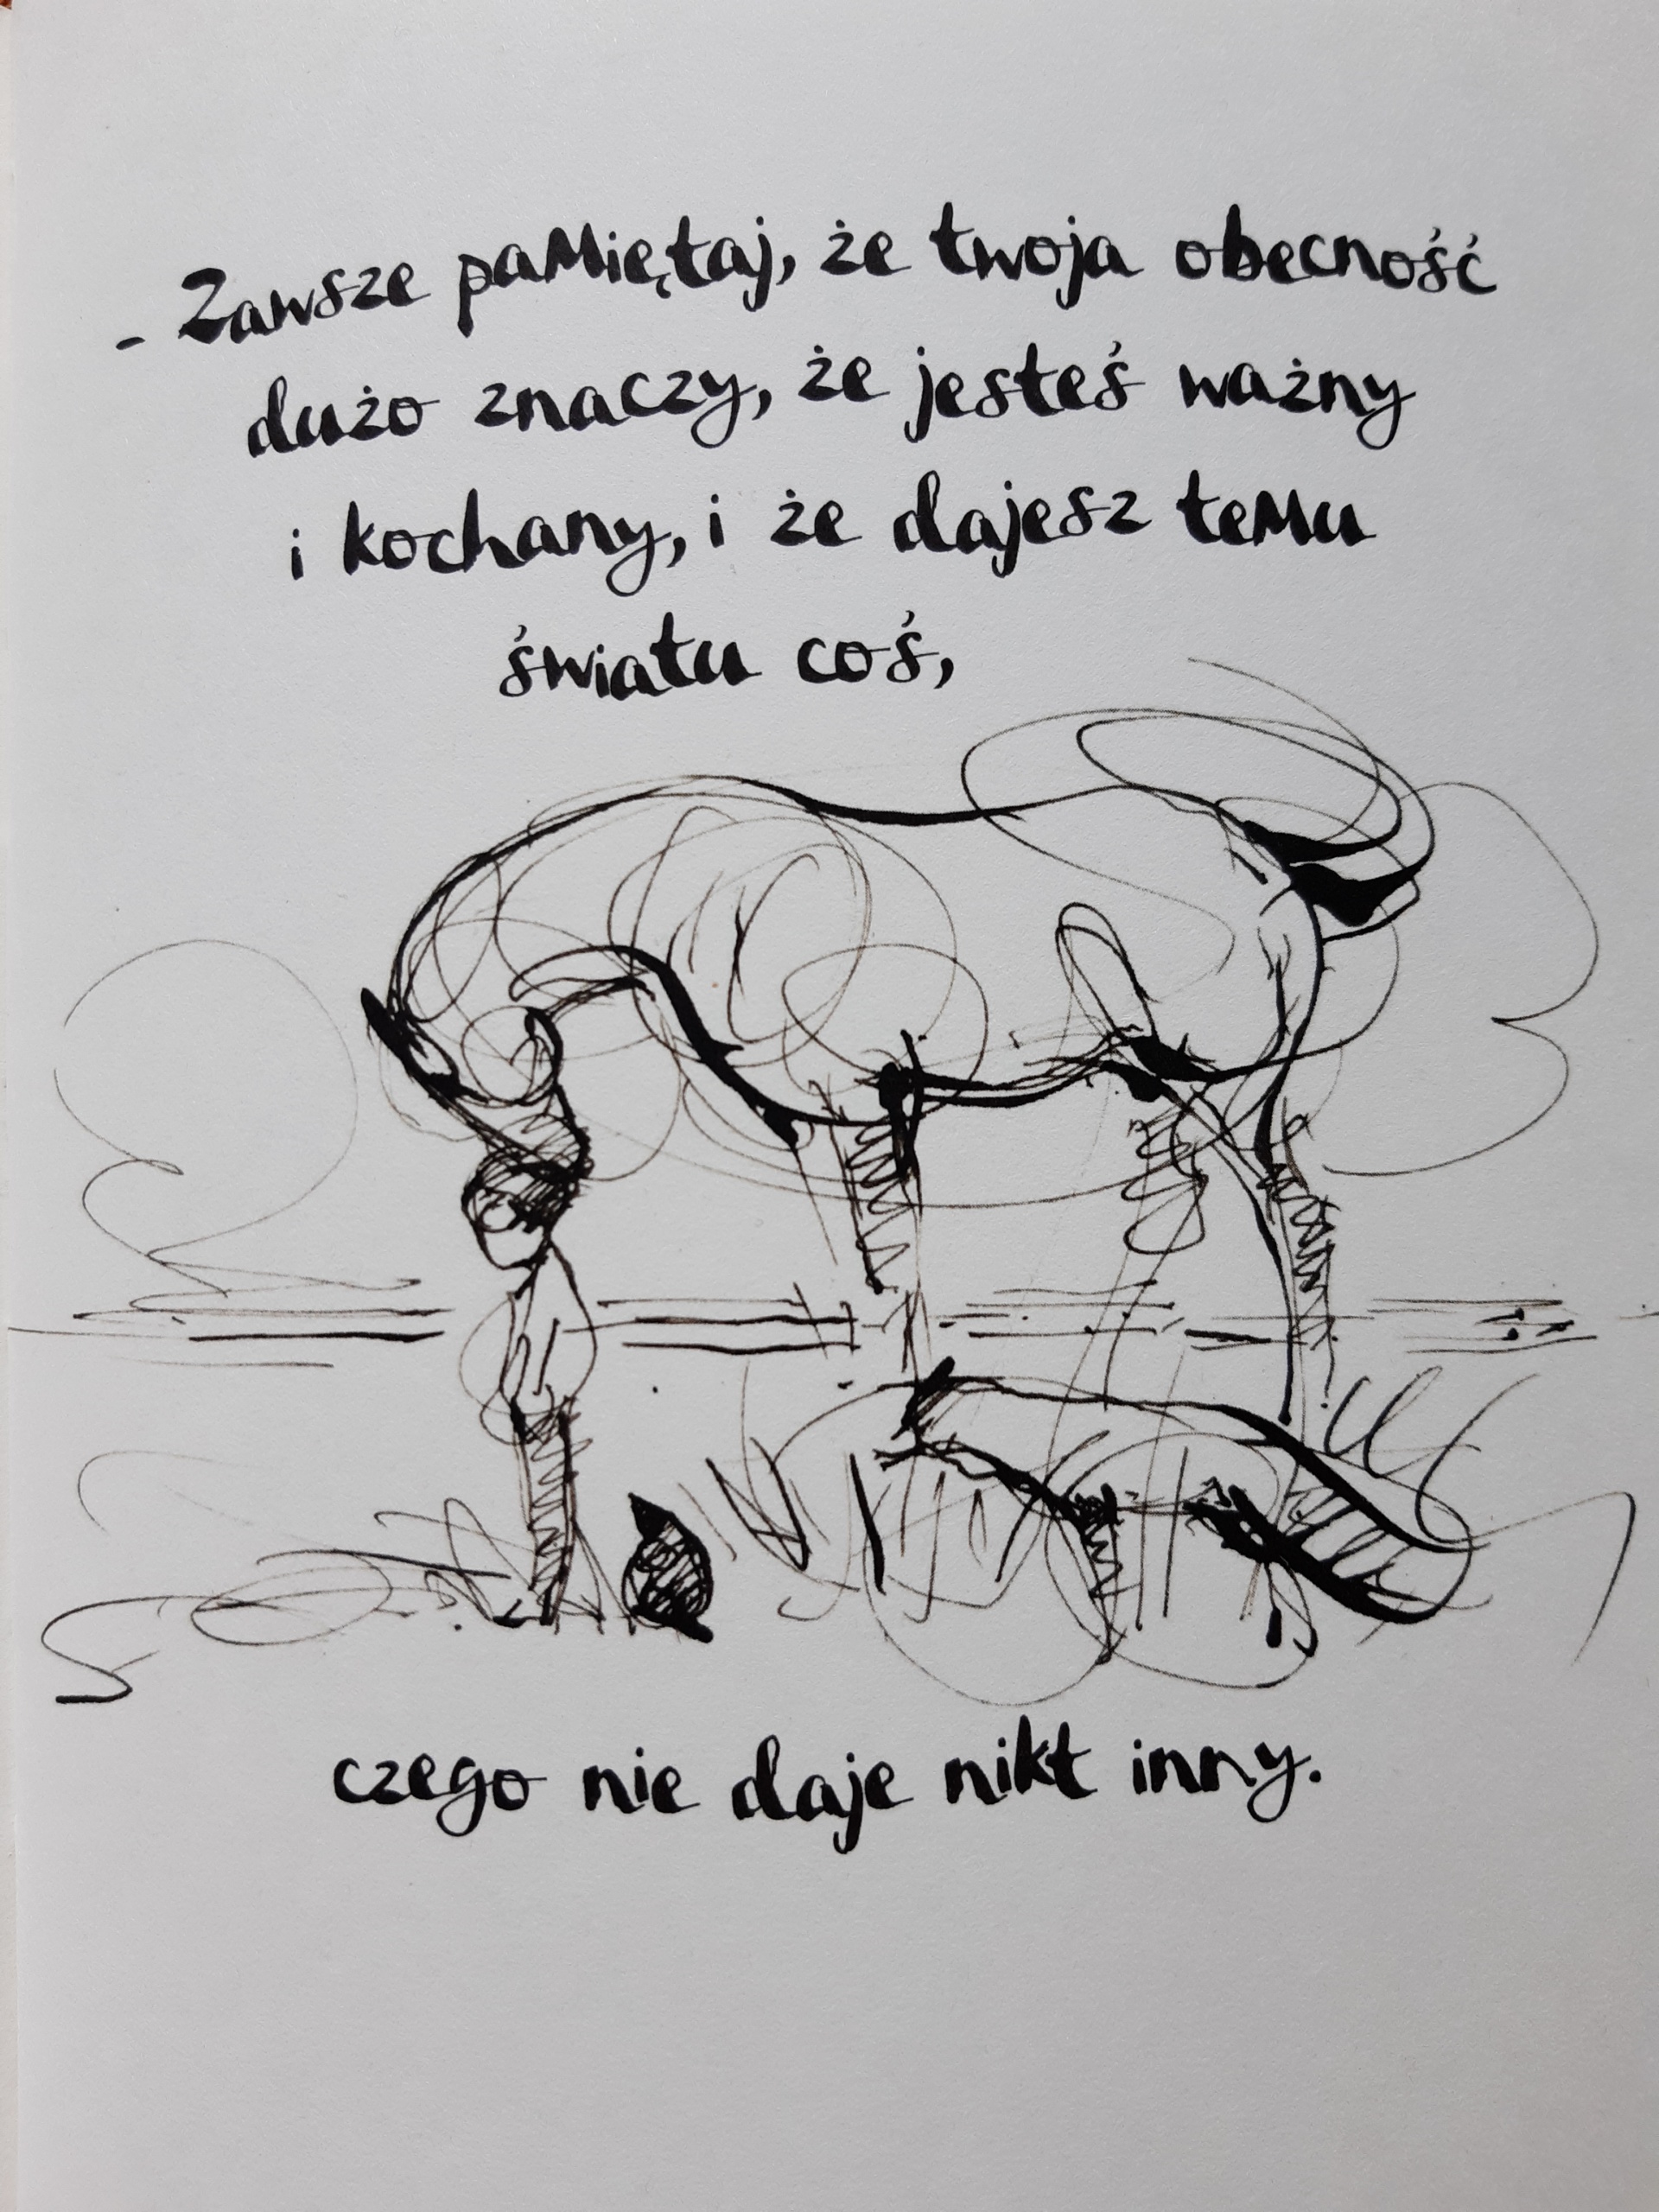 - Zawsze pamiętaj, że twoja obecność
dużo znaczy, że jesteś ważny
i kochany, i że dajesz temu
światu coś,
czego nie daje nikt inny.